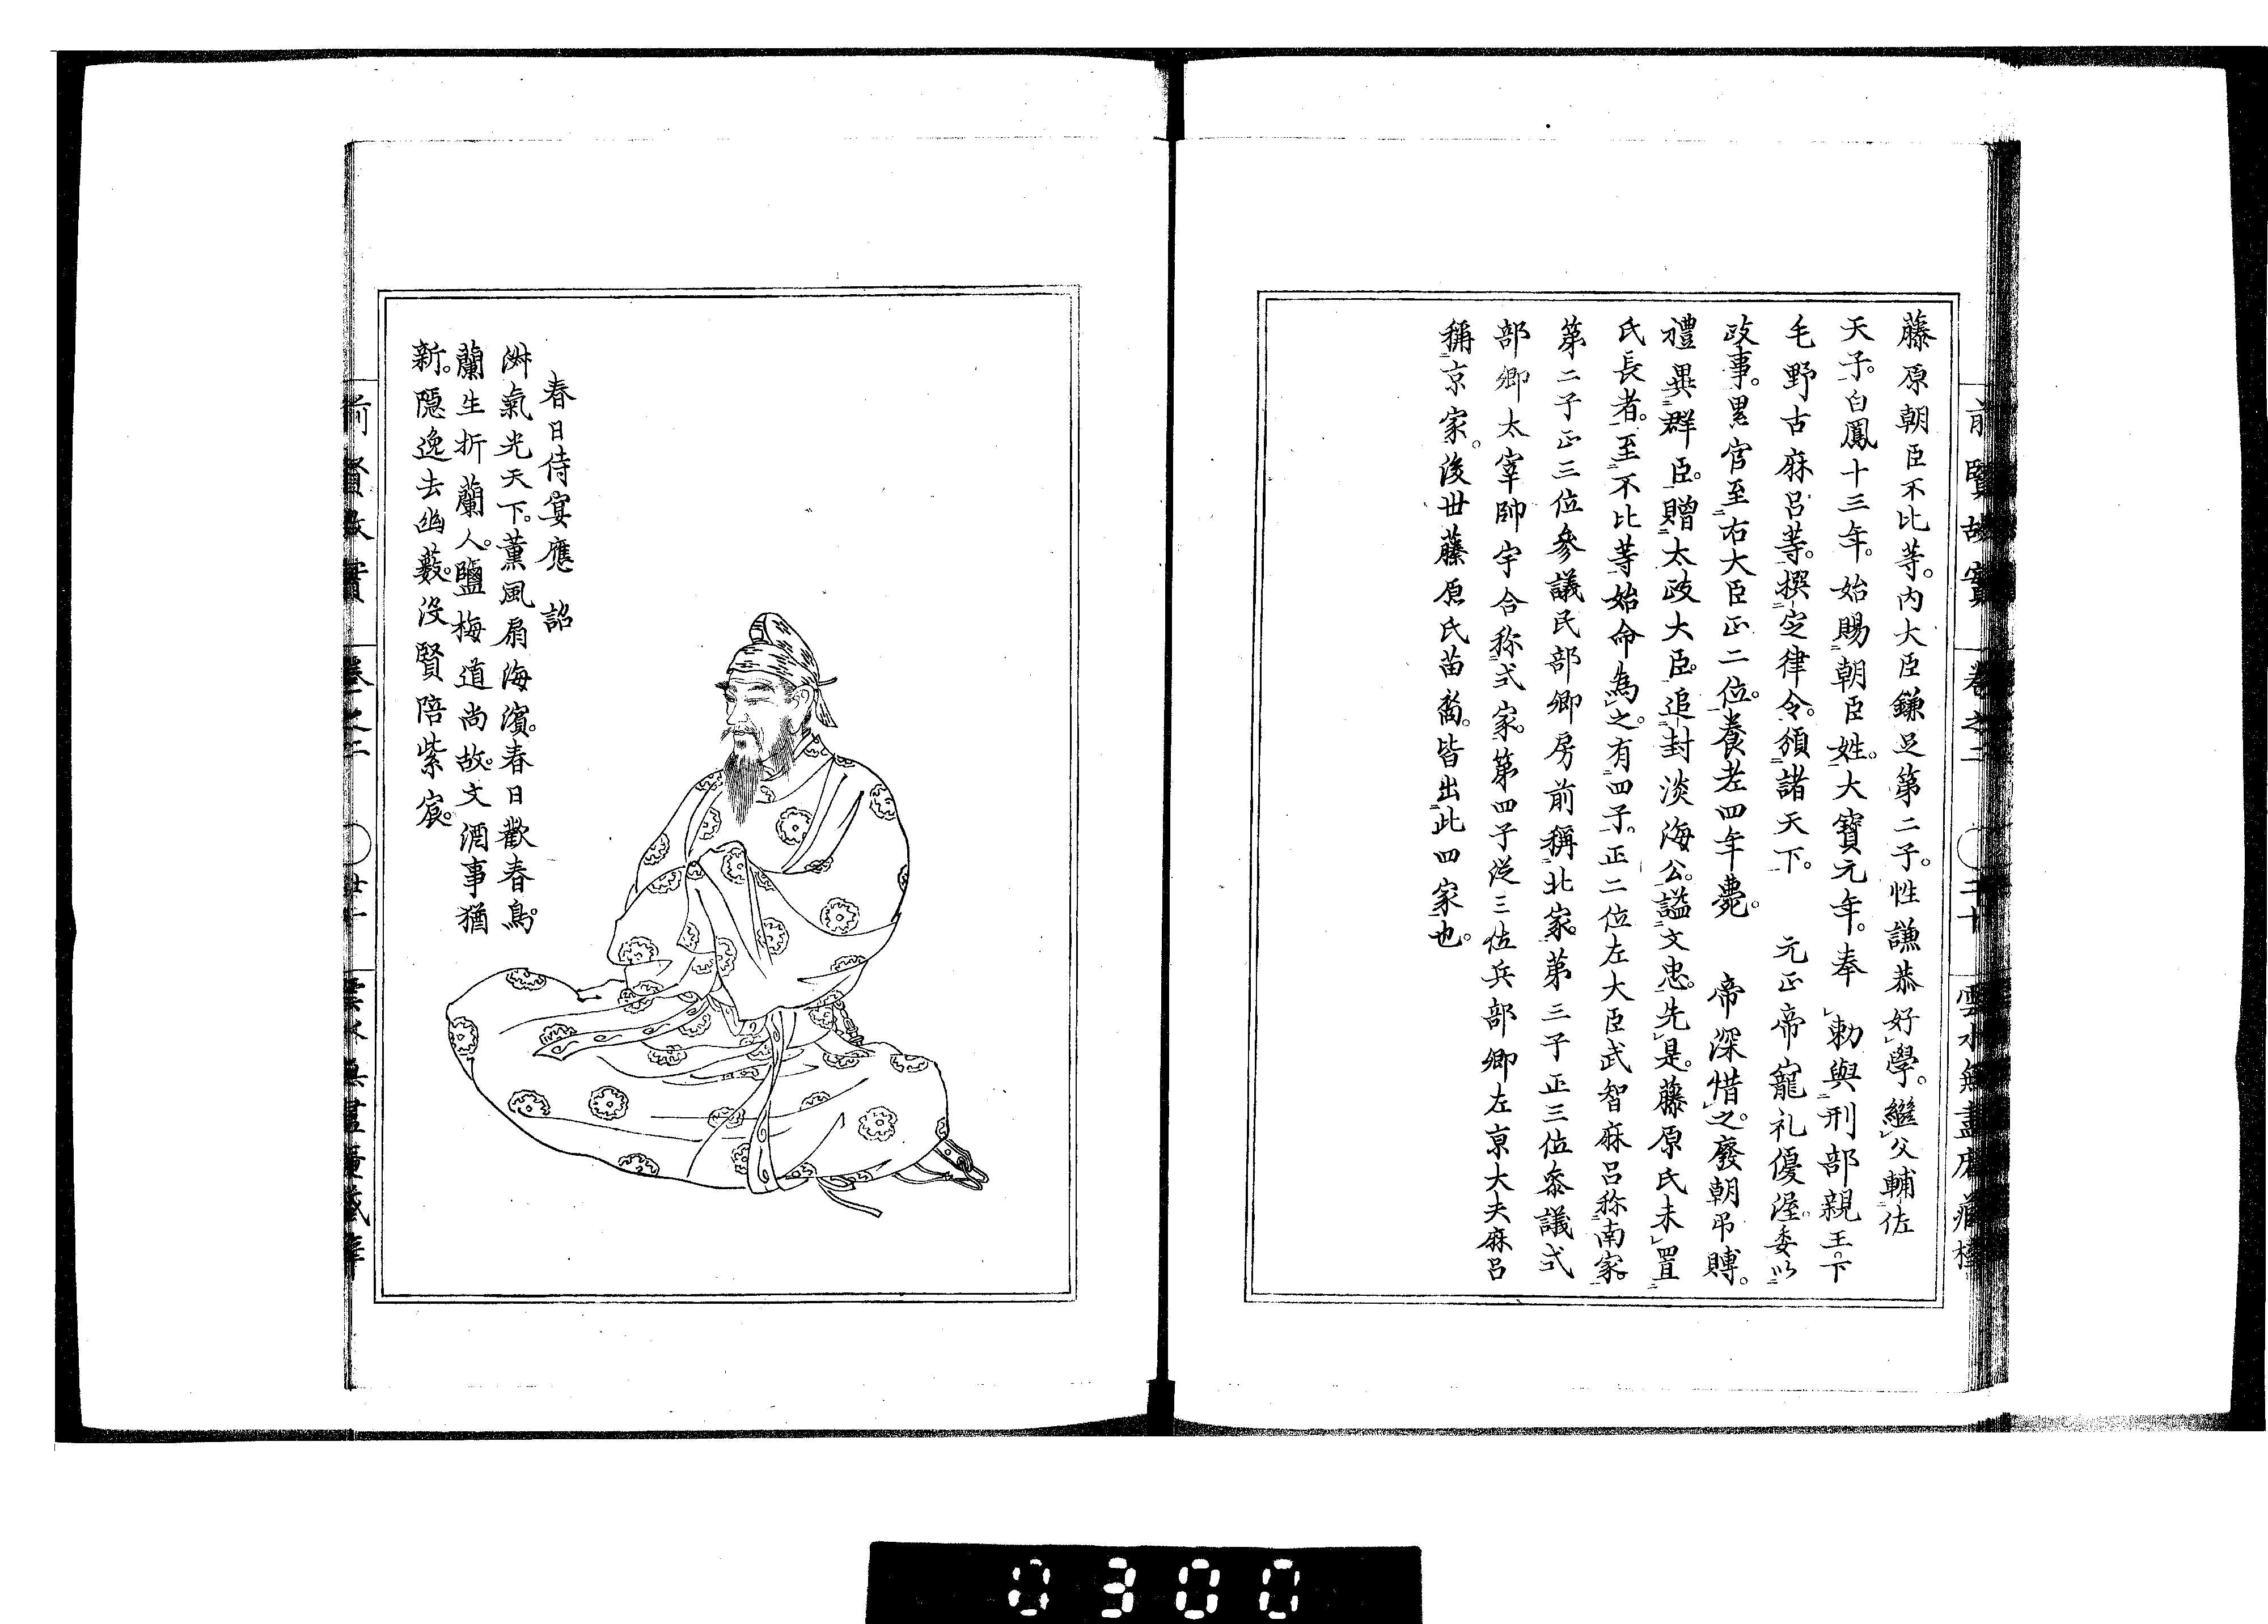 藤原朝臣不比等。内大臣鎌足第二子。性謙恭好學。繼父輔佐
天子。白鳳十三年。始賜朝臣姓。大寶元年。奉　勅與刑部親王下
毛野古麻呂等。撰定律令。頒諸天下。　元正帝寵礼優渥。委以
政事。累官至右大臣正二位。養老四年薨。　帝深惜之。廢朝吊賻。
禮異群臣。贈太政大臣。追封淡海公。謚文忠。先是。藤原氏未置
氏長者。至不比等始命為之。有四子。正二位左大臣武智麻呂称南家。
第二子正三位參議民部卿房前稱北家。第三子正三位參議式
部卿太宰帥宇合称式家。第四子從三位兵部卿左京大夫麻呂
稱京家。後世藤原氏苗裔。皆出此四家也。
前賢故實
卷之二
二十
雲水無盡庵藏
春日侍宴應　詔
淑氣光天下。薫風扇海濱。春日歡春鳥。
蘭生折蘭人。鹽梅道尚故。文酒事猶
新。隱逸去幽藪。没賢陪紫宸。
前賢故實
卷之二
廿一
0300